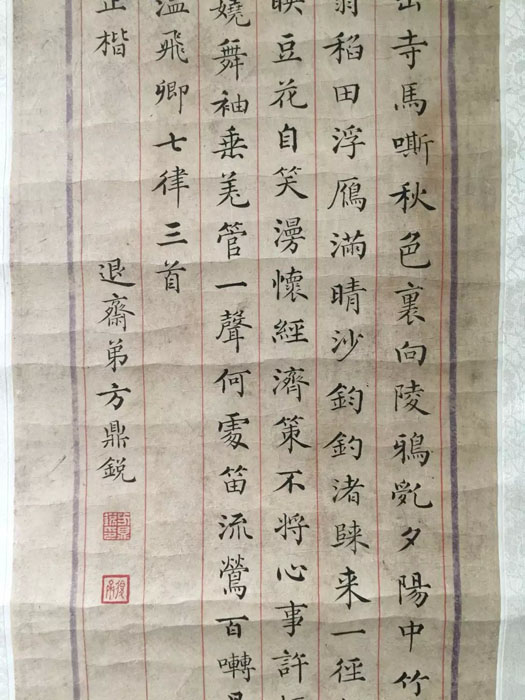 出寺馬嘶秋色裏向陵鴉亂夕陽中竹
翁稻田浮鴈滿晴沙鈞釣渚歸来一徑
映豆花自笑漫懷經濟策不將心事許
嬈舞袖垂羌管一聲何處笛流鶯百囀
溫飛卿七律三首
正楷
退齋弟方鼎銳